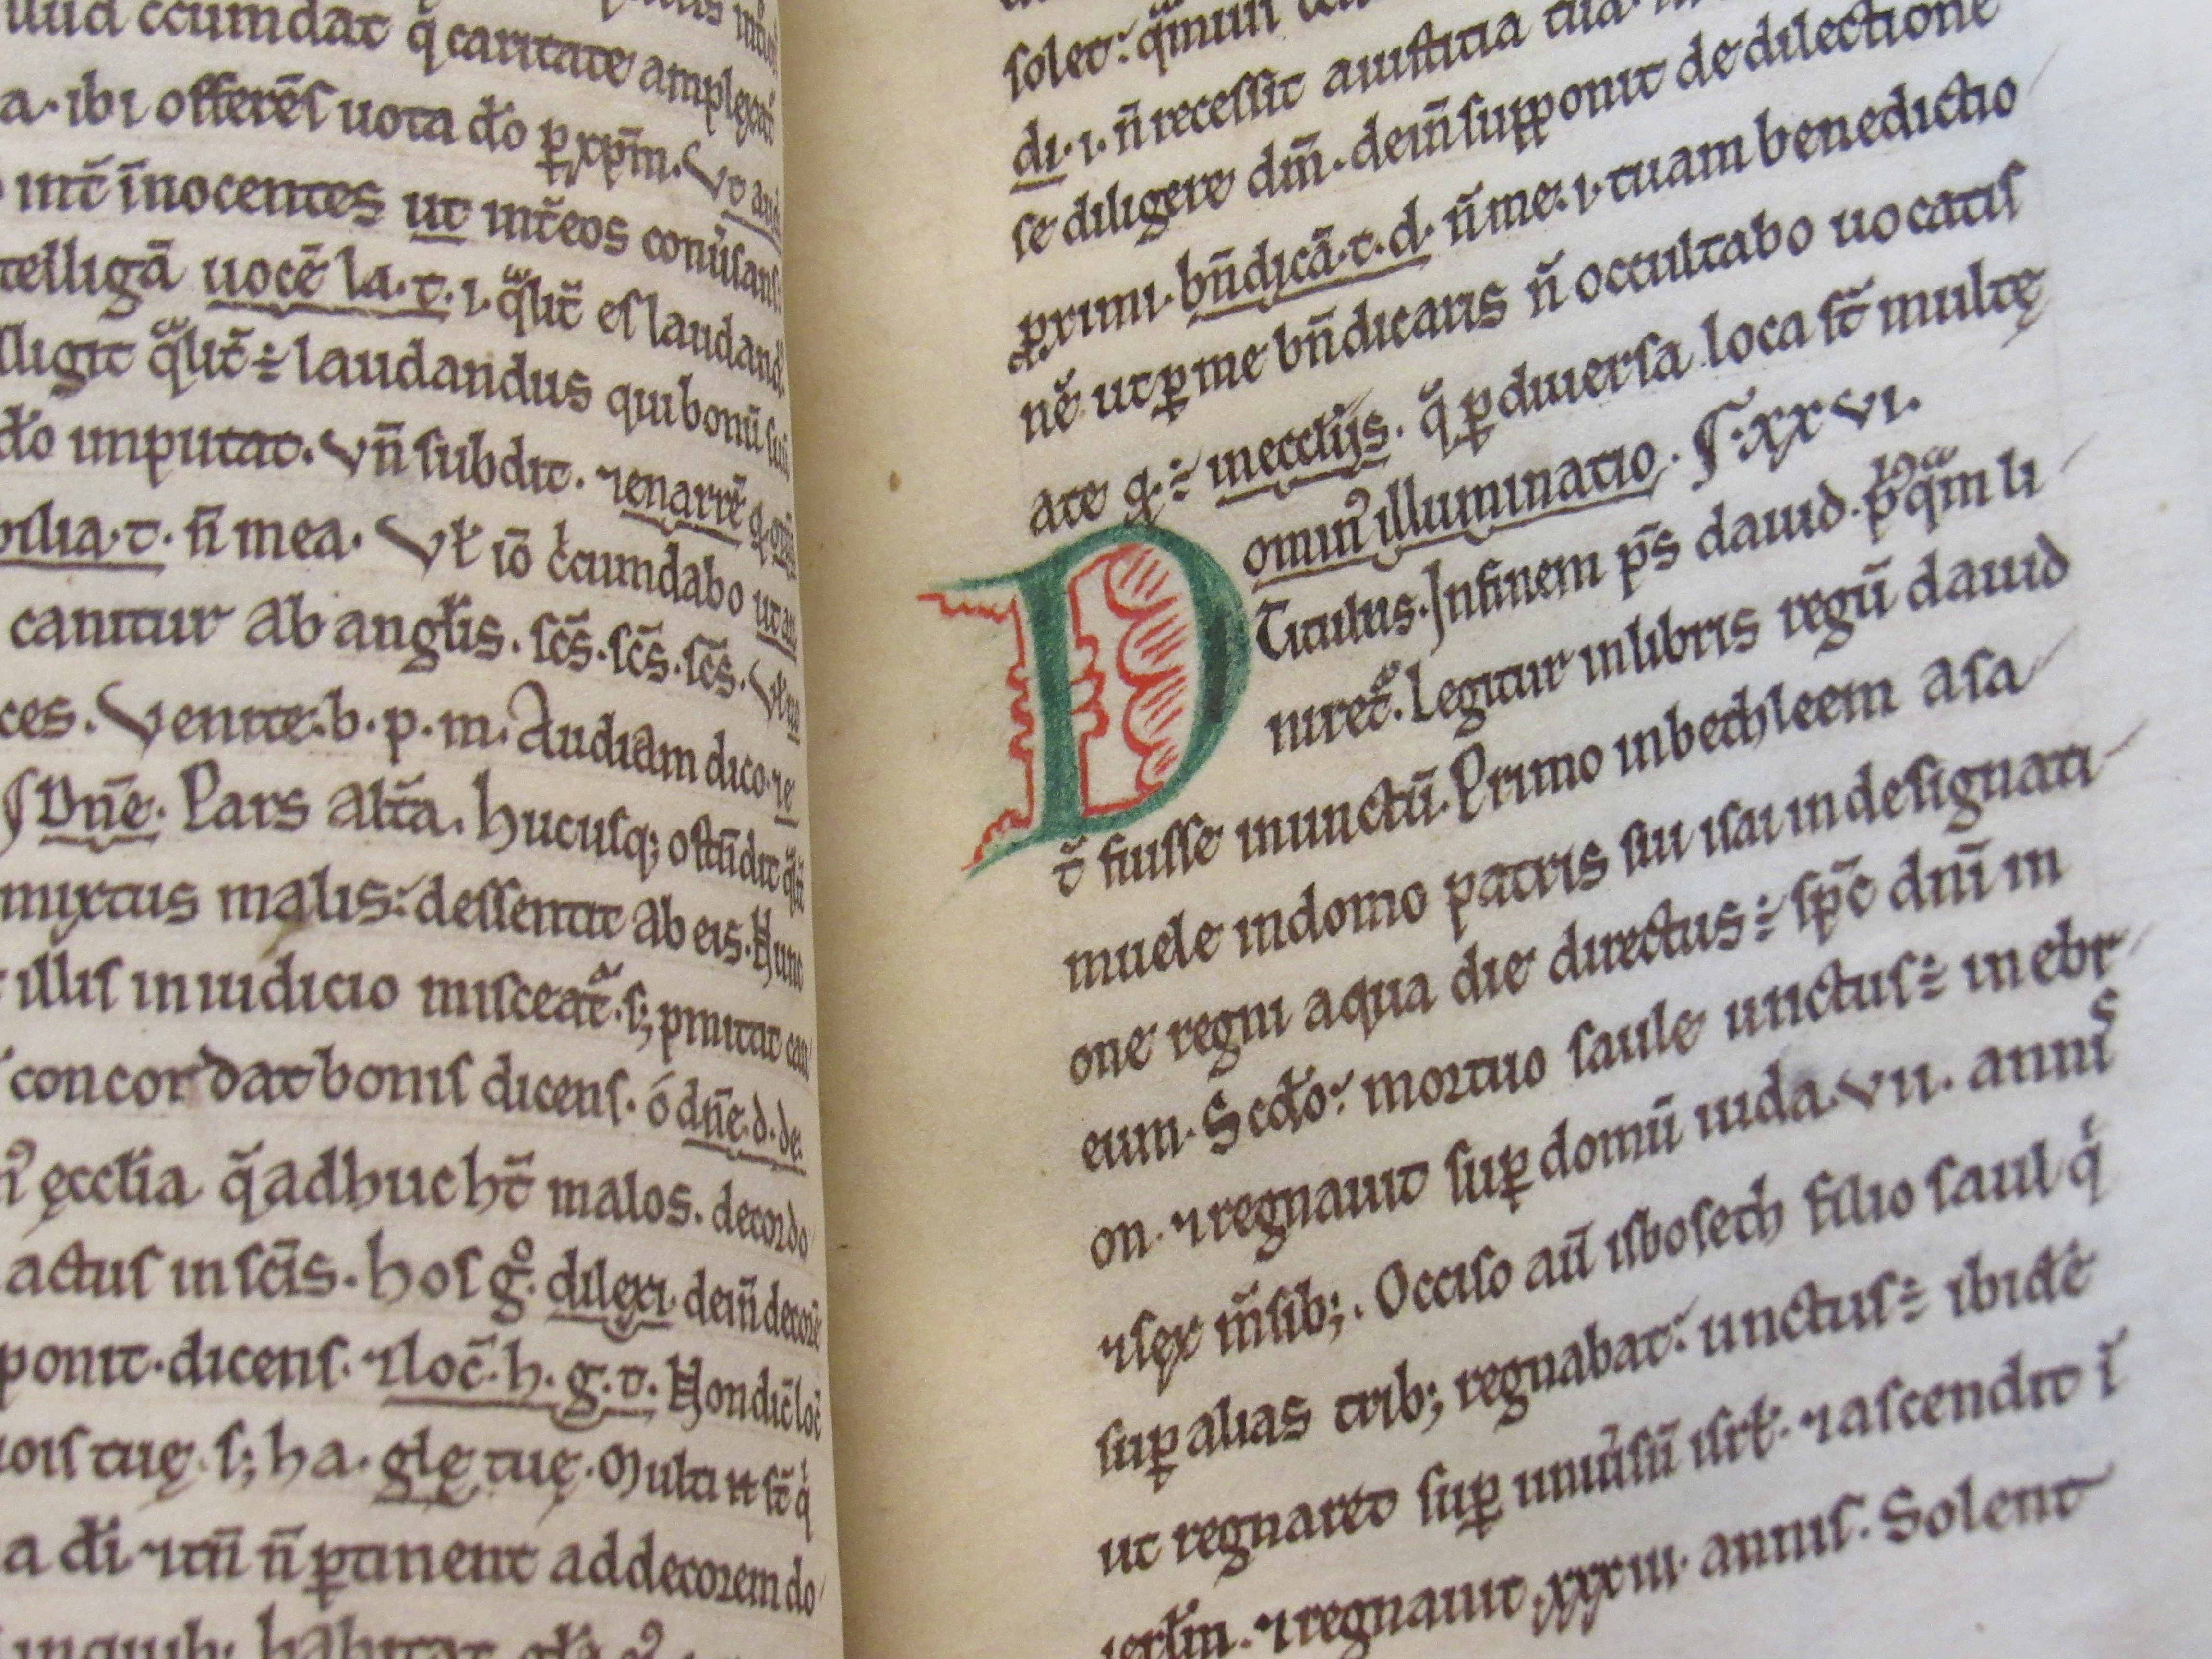 uud ccumdat q̃ caritate amplexat᷑
a. ibi offerēs uota d̃o ꝑ xp̄m. Vt aud
int̃ īnocentes ut int̃ eos conũsans
telligā uocē la. t. i. q̃lit̃ es laudand
lligit q̃lit̃ ÷ laudandus qui bonū suū
d̃o imputat. Vñ subdit. ⁊ enarrē
bilia. t. ñ mea. Vł iō c̃cumdabo ut
canitur ab angłis. sc̄s. sc̄s. sc̄s. Vł
ces. Venite. b. p. m. Audiam dico. ⁊ e
Dn̄e. Pars alt̃a. hucusq; ostñdit
mixtus malis: dessentit ab eis. Hunc
illis in iudicio misceat᷑. s; pmittat
concordat bonis dicens. ó dn̄e. d. de.
ęccłia q̃ adhuc ht̃ malos. decordo
actus in sc̄is. hos gͦ. dilexi. deiñ decorē
ponit. dicens. ⁊ loc̃. h. g. t. Hon dic̃ loc̃
tuę. s; ha. glę tuę. Multi st̃ q̇
a d̃i ⁊ tñ ñ ꝑtinent ad decorem do
habitat
solet:
di. i. ñ recessit a iustitia tua.
se diligere dm̄. deiñ supponit de dilectione
ꝓximi. bñdicā. t. d. ñ me. i. tuam benedictio
nē. ut ꝑ me bñdicaris ñ occultabo uocatis
ate q. ÷ in eccłijs. q̃ ꝑ diuersa loca st̃ multę
Dominꝰ illuminatio. P̄s. xxvi.
Titulus. In finem p̄s dauid. pͥꝰq̃m li
niret᷑. Legitur in libris regū dauid
t̃ fuisse inunctū. Primo in bethleem a sa
muele in domo patris sui isai in designati
one regni a qua die directus ÷ sp̄c dn̄i in
eum. Scd̃o: mortuo saule unctus ÷ in ebr
on. ⁊ regnauit suꝑ domū iuda. vii. annis
⁊ sex m̄sib;. Occiso aū isboseth filio saul q̇
suꝑ alias trib; regnabat: unctus ÷ ibidē
ut regnaret suꝑ uniũsū isrł. ⁊ ascendit ī
ierłm. ⁊ regnauit xxxiii. annis. Solent